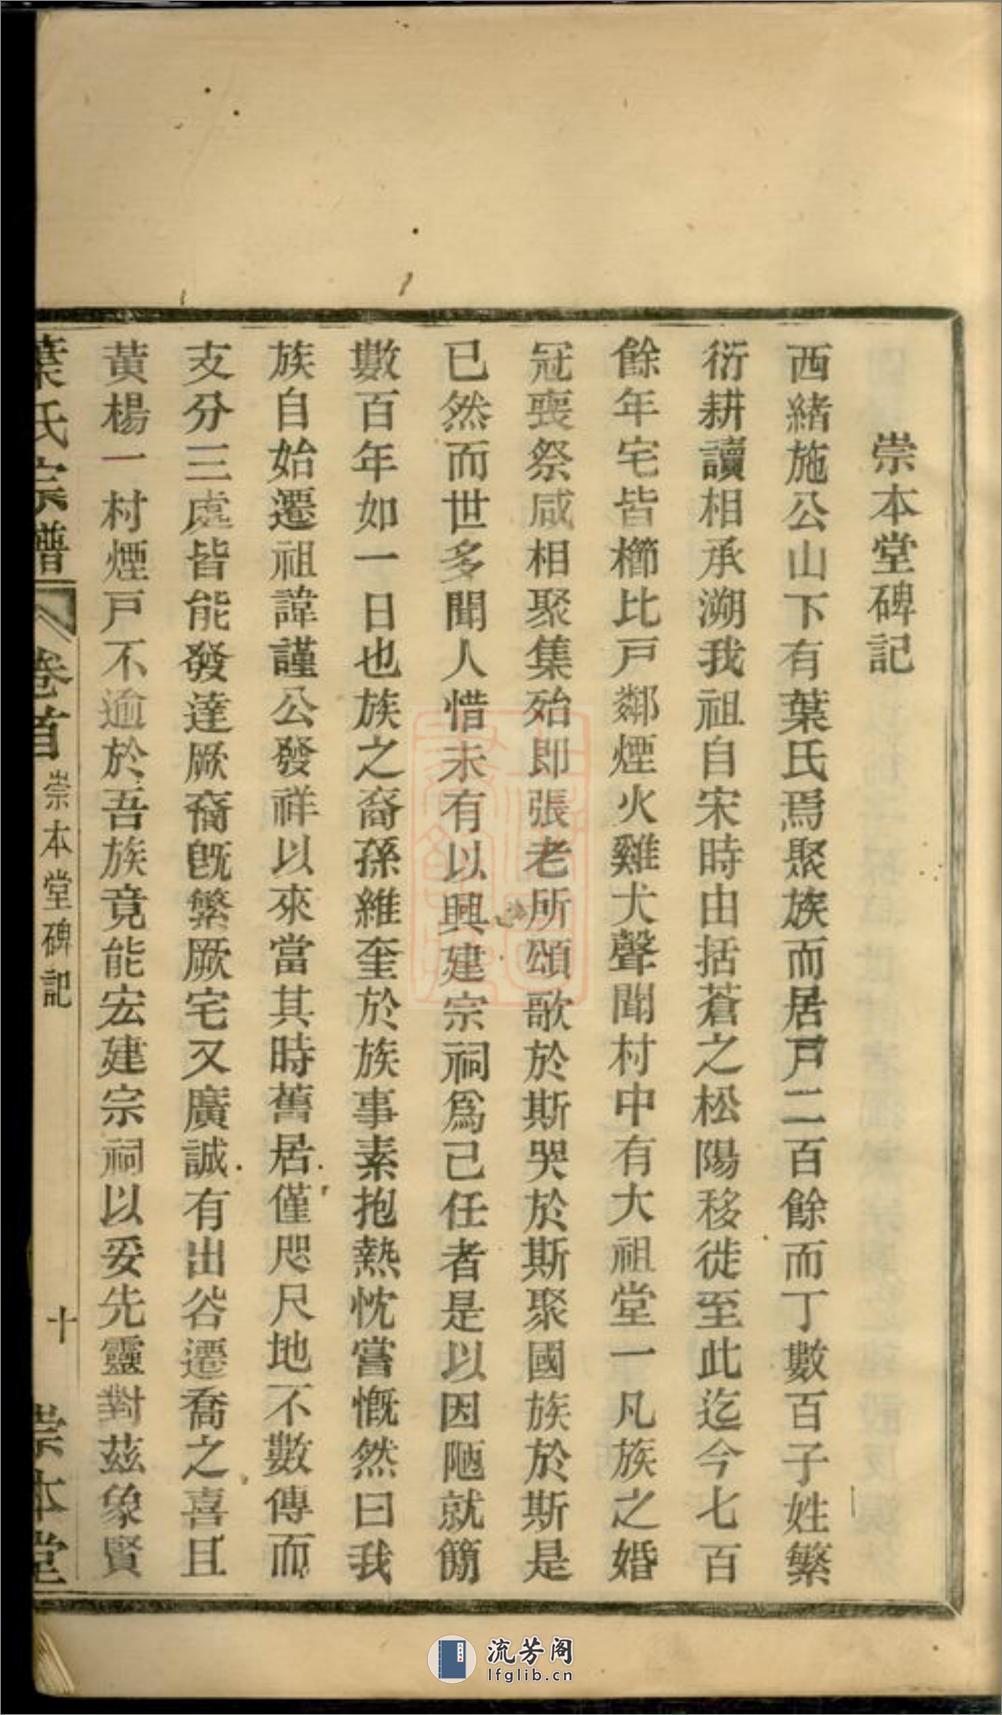 崇本堂碑記
西緒施公山下有葉氏焉聚族而居戸二百餘而丁數百子姓繁
衍耕讀相承溯我祖自宋時由括蒼之松陽移徙至此迄今七百
餘年宅皆櫛比戸鄰煙火雞犬聲聞村中有大祖堂一凡族之婚
冠喪祭咸相聚集殆即張老所頌歌於斯哭於斯聚國族於斯是
已然而世多聞人惜未有以興建宗祠爲己任者是以因陋就簡
數百年如一日也族之裔孫維奎於族事素抱熱忱嘗慨然曰我
族自始遷祖諱謹公發祥以來當其時舊居僅咫尺地不數傳而
支分三處皆能發達厥裔旣繁厥宅又廣誠有出谷遷喬之喜且
黃楊一村煙戸不逾於吾族竟能宏建宗祠以妥先靈對茲象賢
葉氏宗譜
卷首
崇本堂碑記
十
崇本堂
流芳阁
lfglib.cn